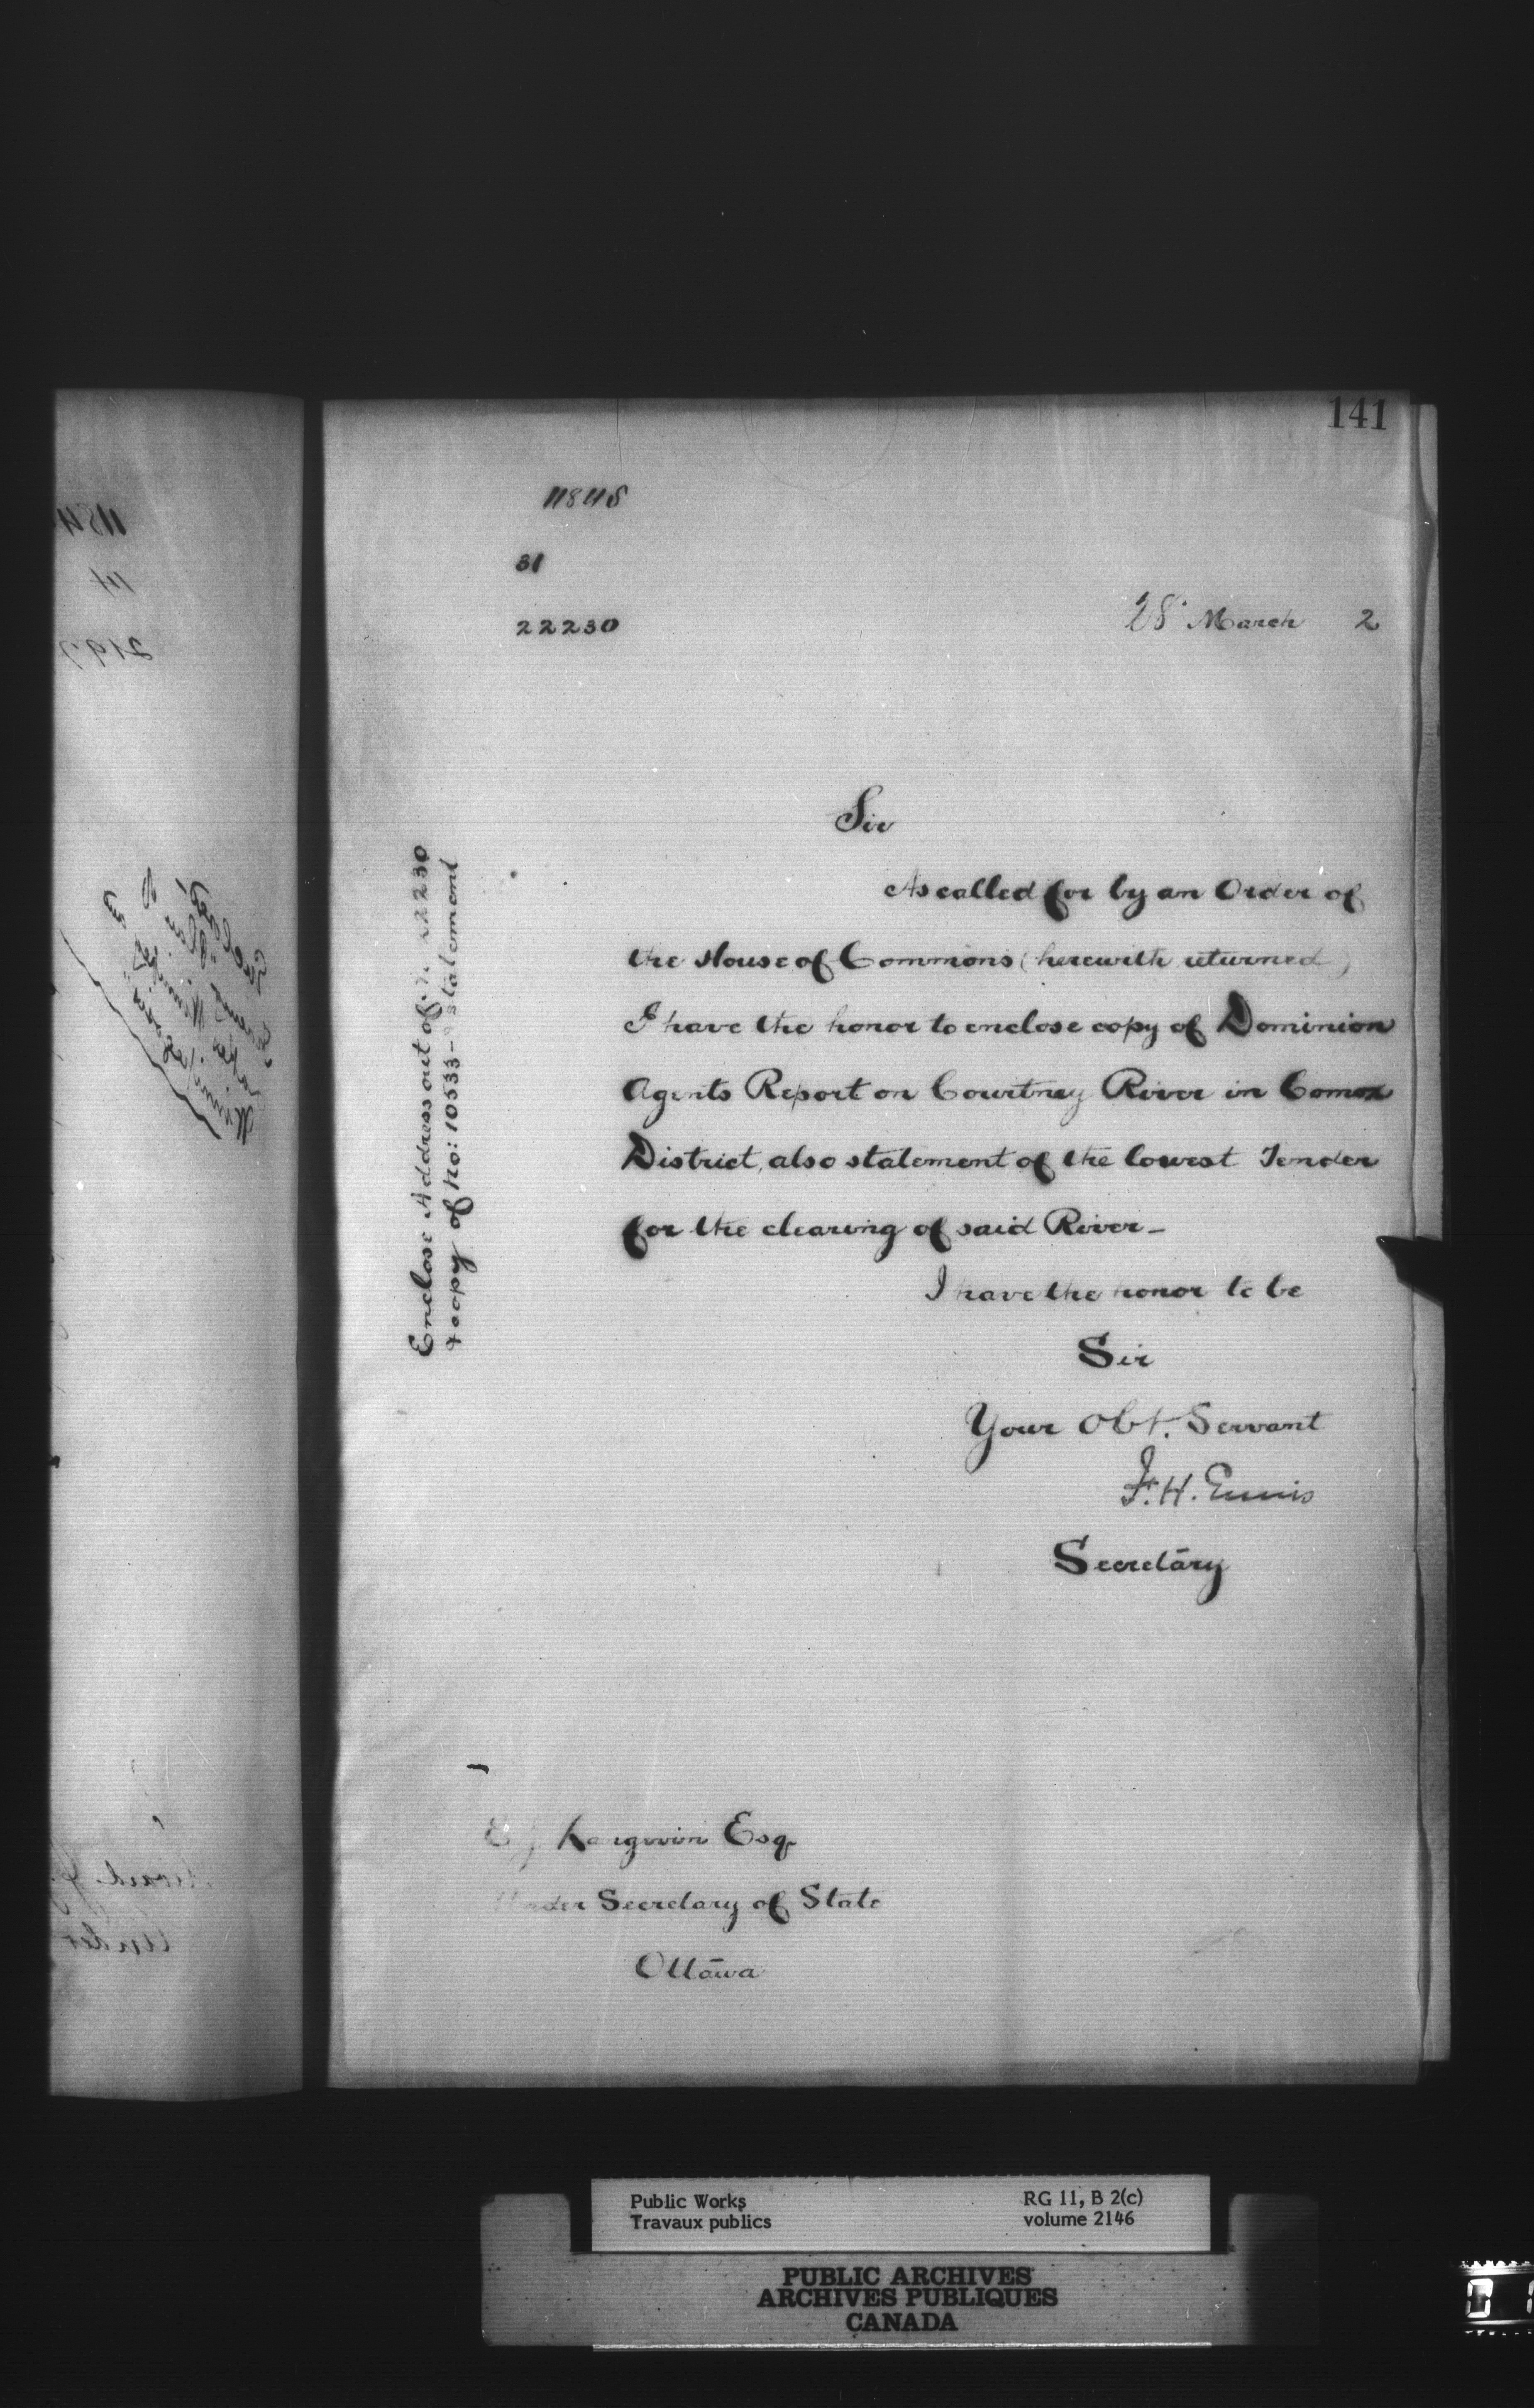 141
11848
31
22230
28 March 2
Enclose Address out of No 22230
& copy of No: 10533 - & statement
Sir
As called for by an Order of
the House of Commons (herewith returned)
I have the honor to enclose copy of Dominion
Agents Report on Courtney River in Comox
District, also statement of the lowest Tender
for the clearing of said River -
I have the honor to be
Sir
Your Obt. Servant
F. H. Ennis
Secretary
Langevin Esq
Under Secretary of State
Ottawa
Public Works
Travaux publics
RG 11, B 2(c)
volume 2146
PUBLIC ARCHIVES
ARCHIVES PUBLIQUES
CANADA